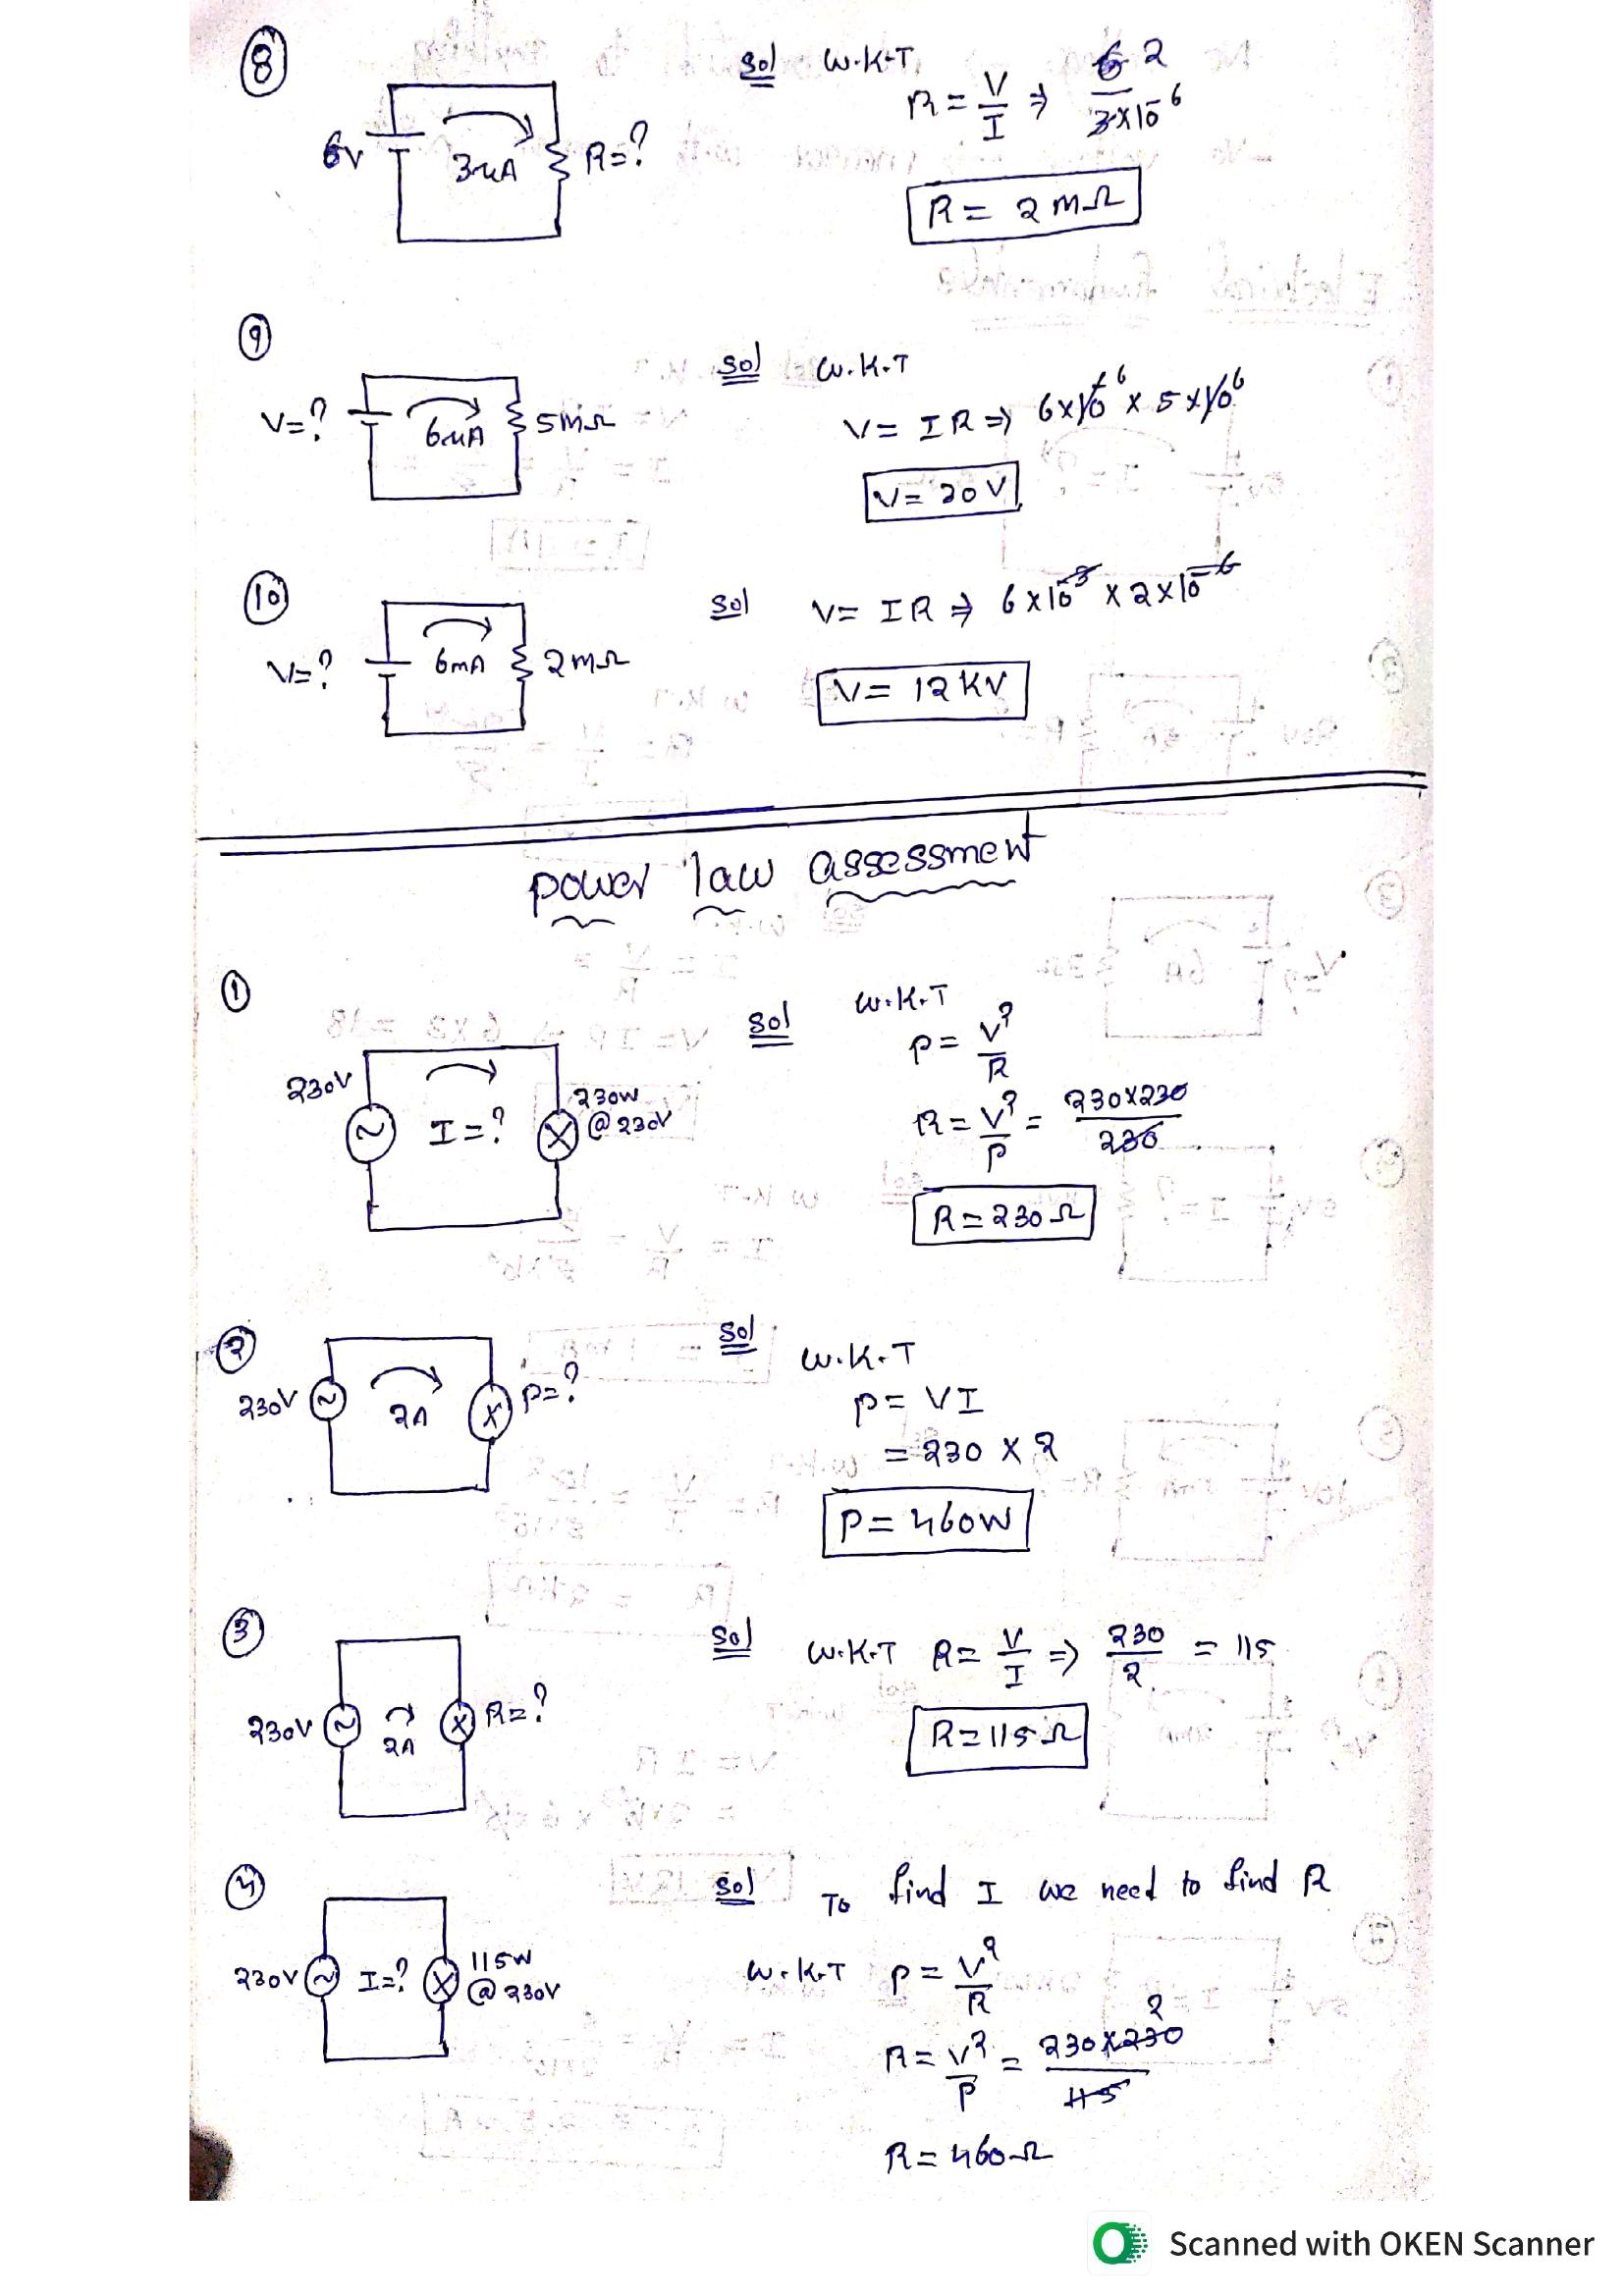 8
6V
3uA
R=?
Sol W.K.T
R = V/I ⇒ 6 2 / 3×10^-6
R = 2 MΩ
9
V=?
6uA
5MΩ
Sol W.K.T
V = IR ⇒ 6×10^-6 × 5×10^6
V= 30V
10
V=?
6mA
2MΩ
Sol V= IR ⇒ 6×10^-3 × 2×10^-6
V= 12KV
power law assessment
1
230V
I=?
230W
@230V
Sol W.K.T
P= V²/R
R= V²/P = 230×230/230
R=230Ω
2
230V
2A
P=?
Sol
W.K.T
P= VI
= 230 × 2
P= 460W
3
230V
2A
R=?
Sol W.K.T R= V/I ⇒ 230/2 = 115
R=115Ω
4
230V
I=?
115W
@230V
Sol To find I we need to find R
W.K.T P= V²/R
R= V²/P = 230×230 2/115
R=460Ω
Scanned with OKEN Scanner